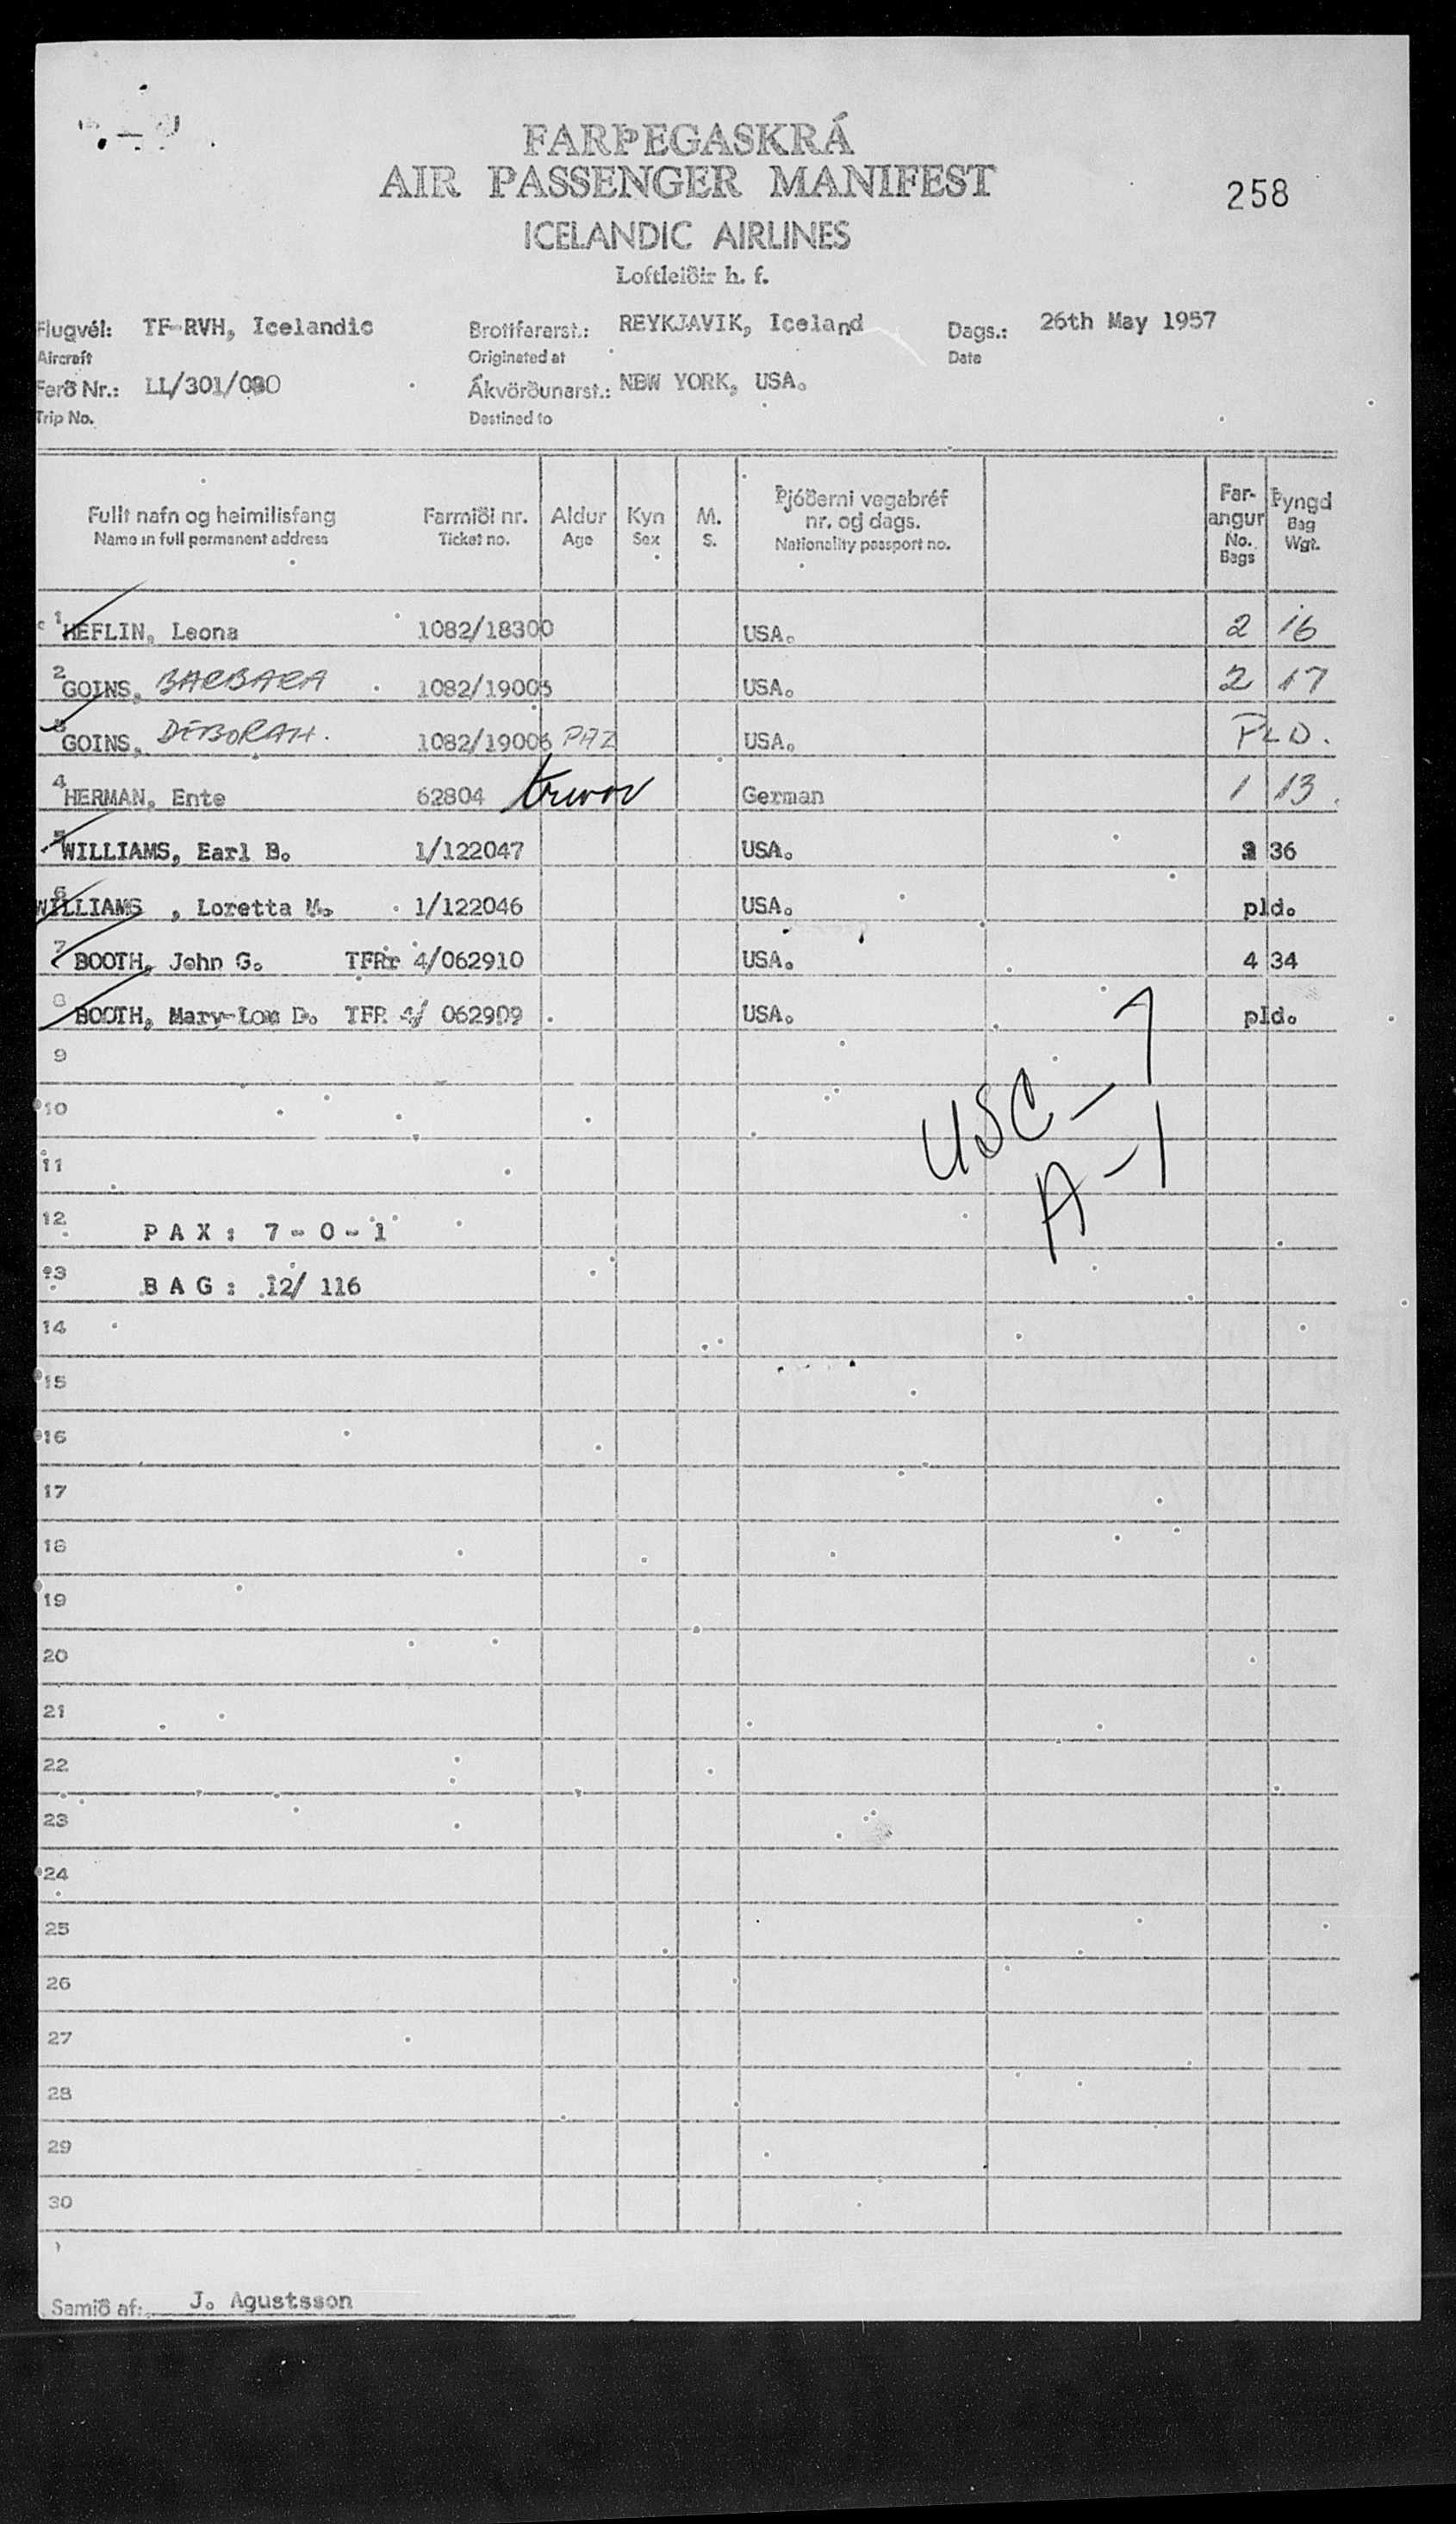 FARÞEGASKRÁ
AIR PASSENGER MANIFEST
258
ICELANDIC AIRLINES
Loftleiðir h. f.
Flugvél: TF-RVH, Icelandic Brottfararst.: REYKJAVIK, Iceland Dags.: 26th May 1957
Aircraft Originated at Date
Ferð Nr.: LL/301/080 Ákvörðunarst.: NEW YORK, USA.
Trip No. Destined to
Fullt nafn og heimilisfang Farmiði nr. Aldur Kyn M. Þjóðerni vegabréf nr. og dags. Far-angur Þyngd
Name in full permanent address Ticket no. Age Sex S. Nationality passport no. No. Bags Bag Wgt.
1 HEFLIN, Leona 1082/18300 USA. 2 16
2 GOINS, BARBARA 1082/19005 USA. 2 17
3 GOINS, DEBORAH. 1082/19006 USA. PLD.
4 HERMAN, Ente 62804 German 1 13
5 WILLIAMS, Earl B. 1/122047 USA. 36
6 WILLIAMS , Loretta M. 1/122046 USA. pld.
7 BOOTH, John G. TFRr 4/062910 USA. 4 34
8 BOOTH, Mary-Lou D. TFR 4/ 062909 USA. pld.
9
10
11
USC - 7
A - 1
12 PAX: 7-0-1
13 BAG: 12/ 116
14
15
16
17
18
19
20
21
22
23
24
25
26
27
28
29
30
Samið af: J. Agustsson